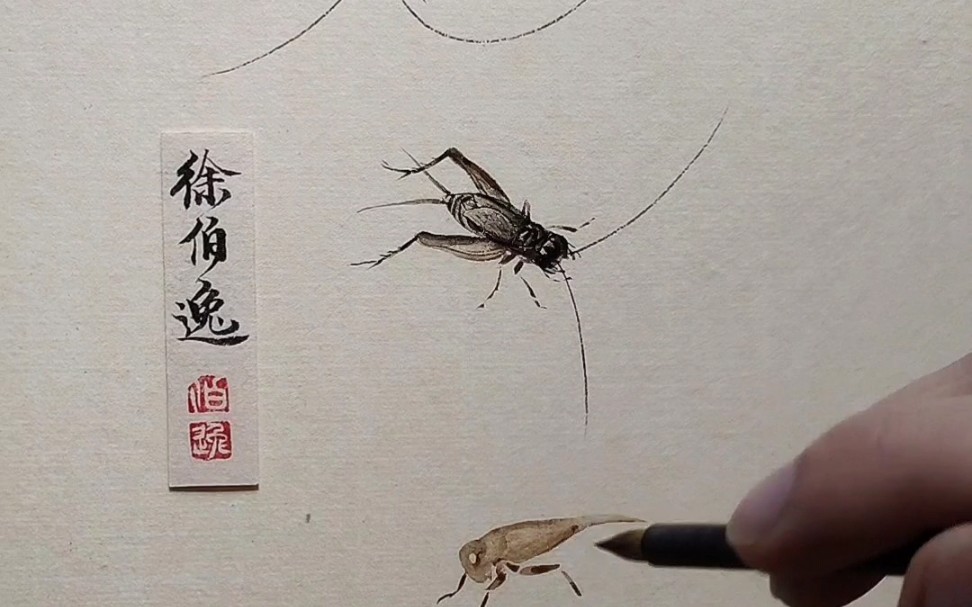 徐伯逸
伯
逸